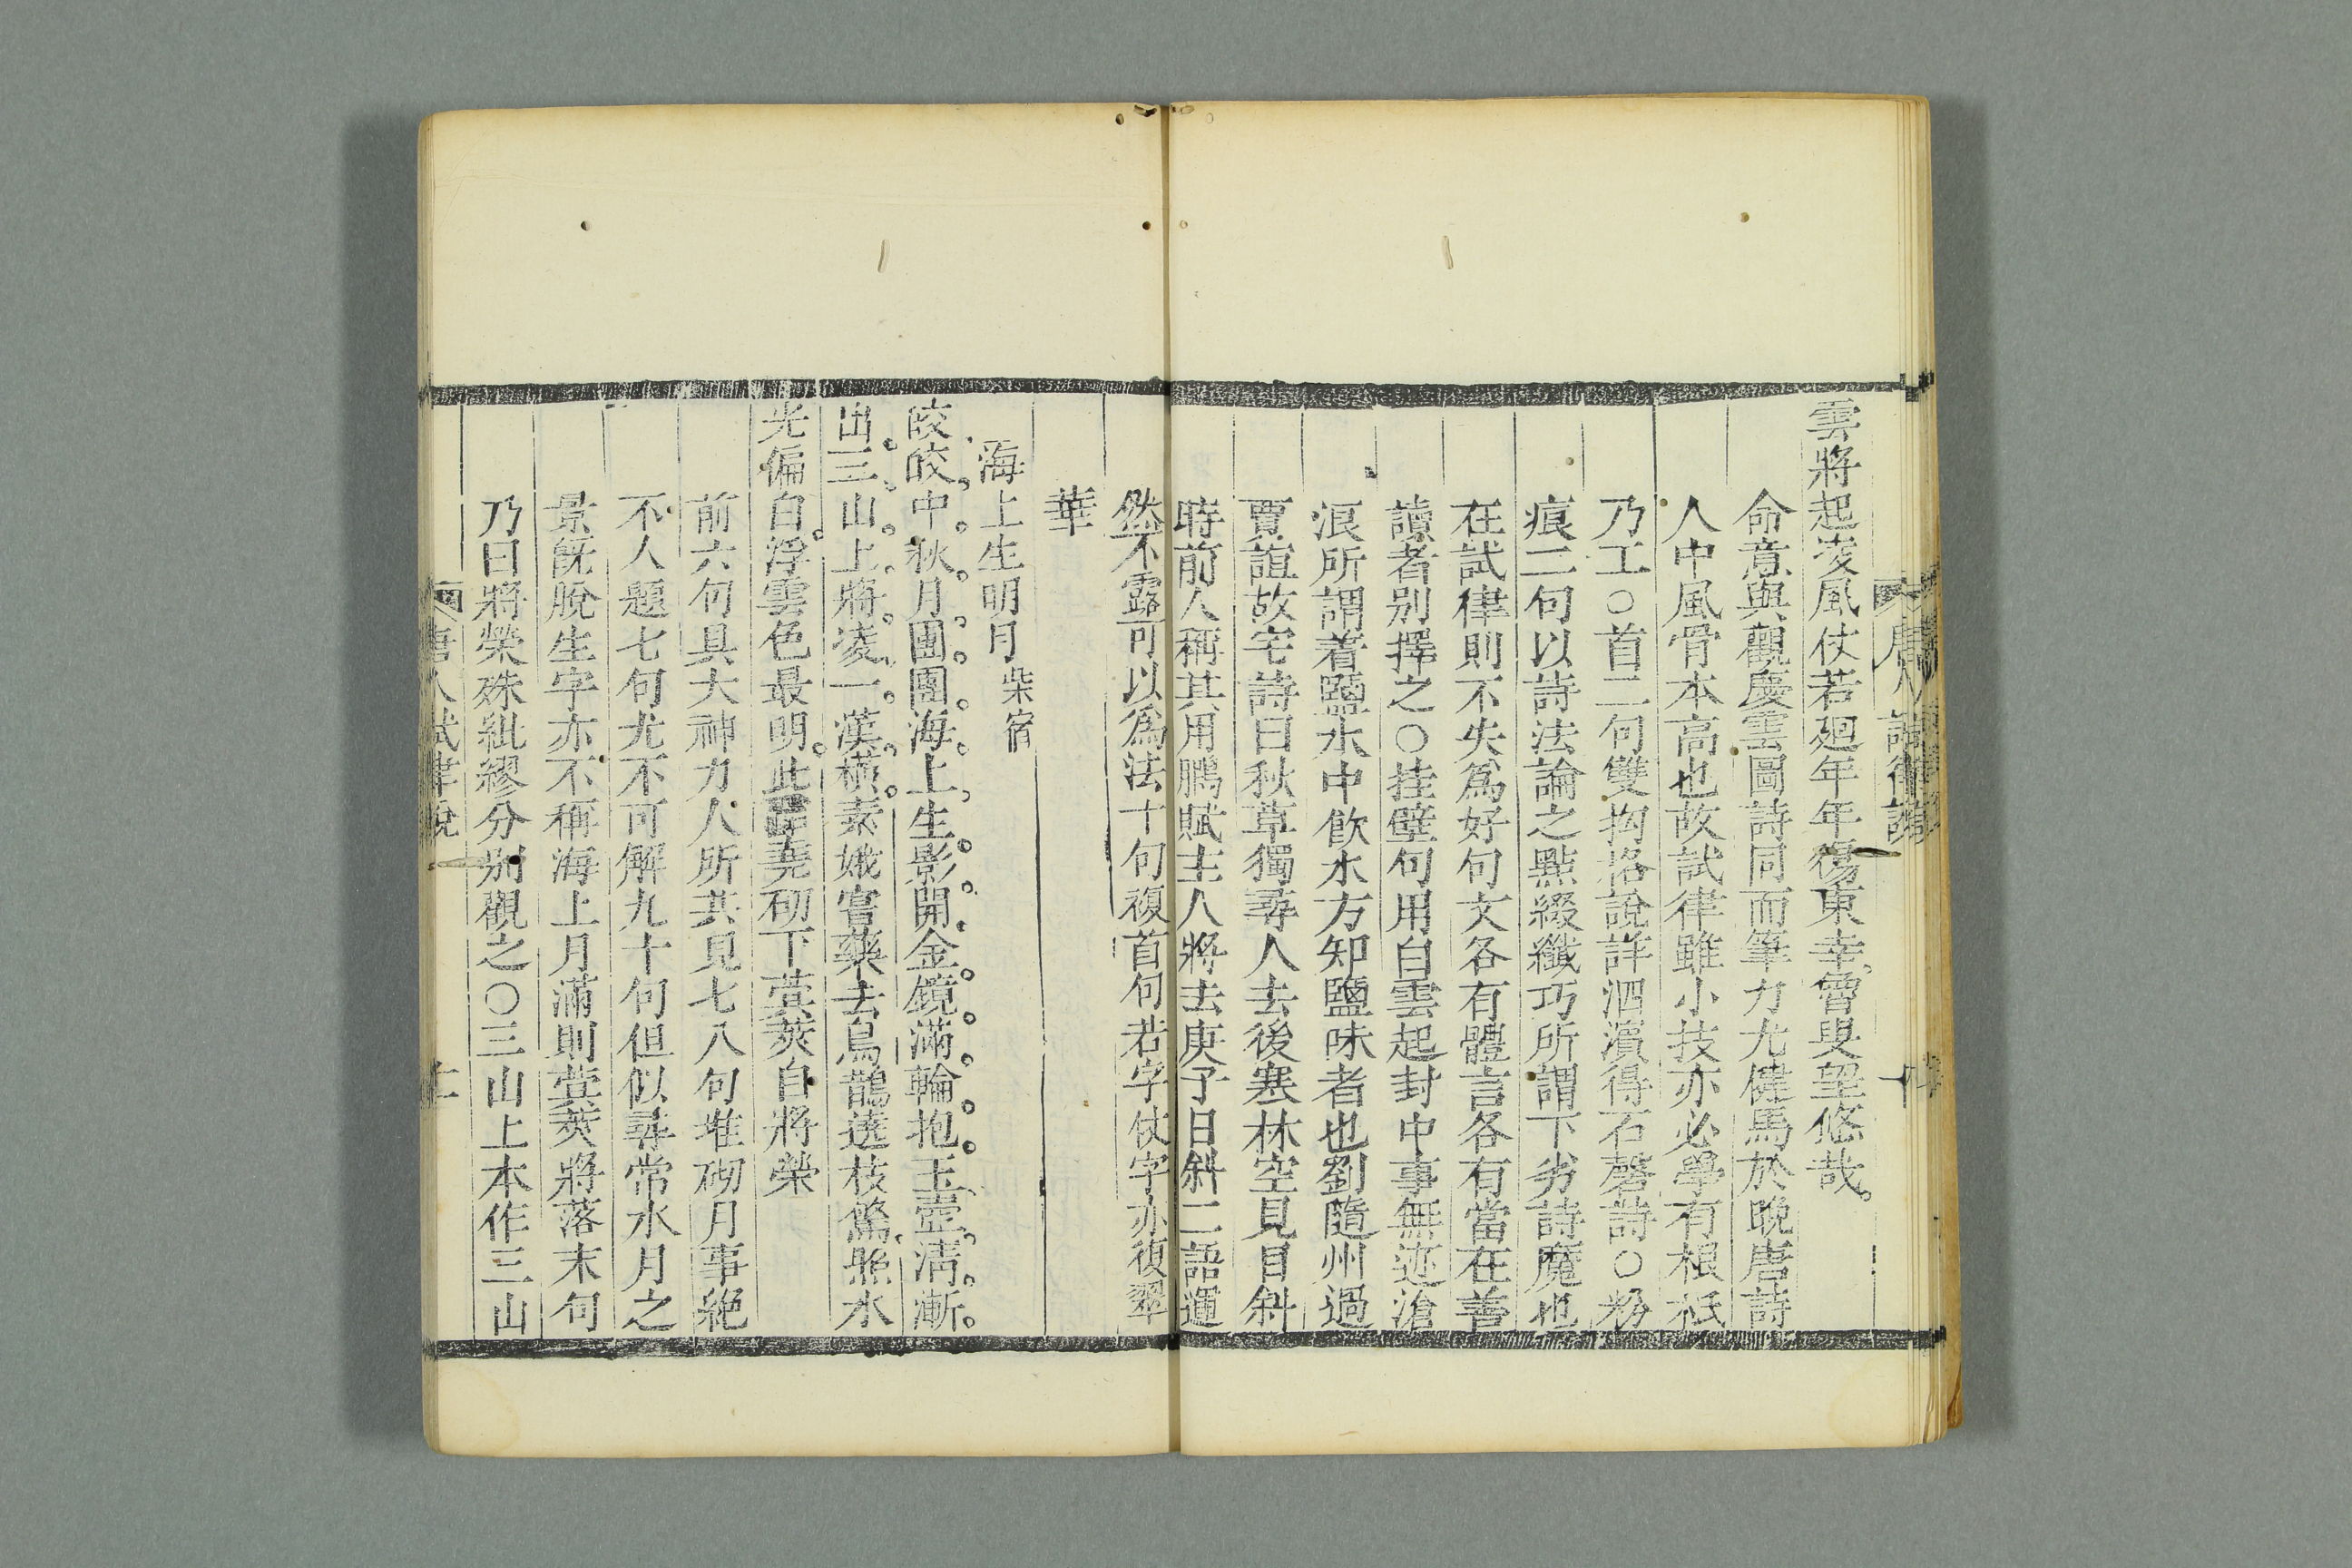 唐人試律說
十
雲將起凌風仗若廻年年復東幸魯叟望悠哉
命意與觀慶雲圖詩同而筆力尤健馬於晚唐詩
人中風骨本高也故試律雖小技亦必學有根柢
乃工○首二句雙拘格說詳泗濱得石磬詩○粉
痕二句以詩法論之點綴纖巧所謂下劣詩魔也
在試律則不失爲好句文各有體言各有當在善
讀者別擇之○挂壁句用白雲起封中事無迹滄
浪所謂着鹽水中飲水方知鹽味者也劉隨州過
賈誼故宅詩曰秋草獨尋人去後寒林空見日斜
時前人稱其用鵩賦主人將去庚子日斜二語運
然不露可以爲法十句複首句若字仗字亦復犟
華
海上生明月 柴宿
皎皎中秋月團團海上生影開金鏡滿輪抱玉壺清漸
出三山上將凌一漢橫素娥嘗藥去烏鵲遶枝驚照水
光偏白浮雲色最明此 堯砌下蓂莢自將榮
前六句具大神力人所共見七八句堆砌月事絶
不入題七句尤不可解九十句但似尋常水月之
景既脫生字亦不稱海上月滿則蓂莢將落末句
乃曰將榮殊紕繆分別觀之○三山上本作三山
唐人試律說
十一